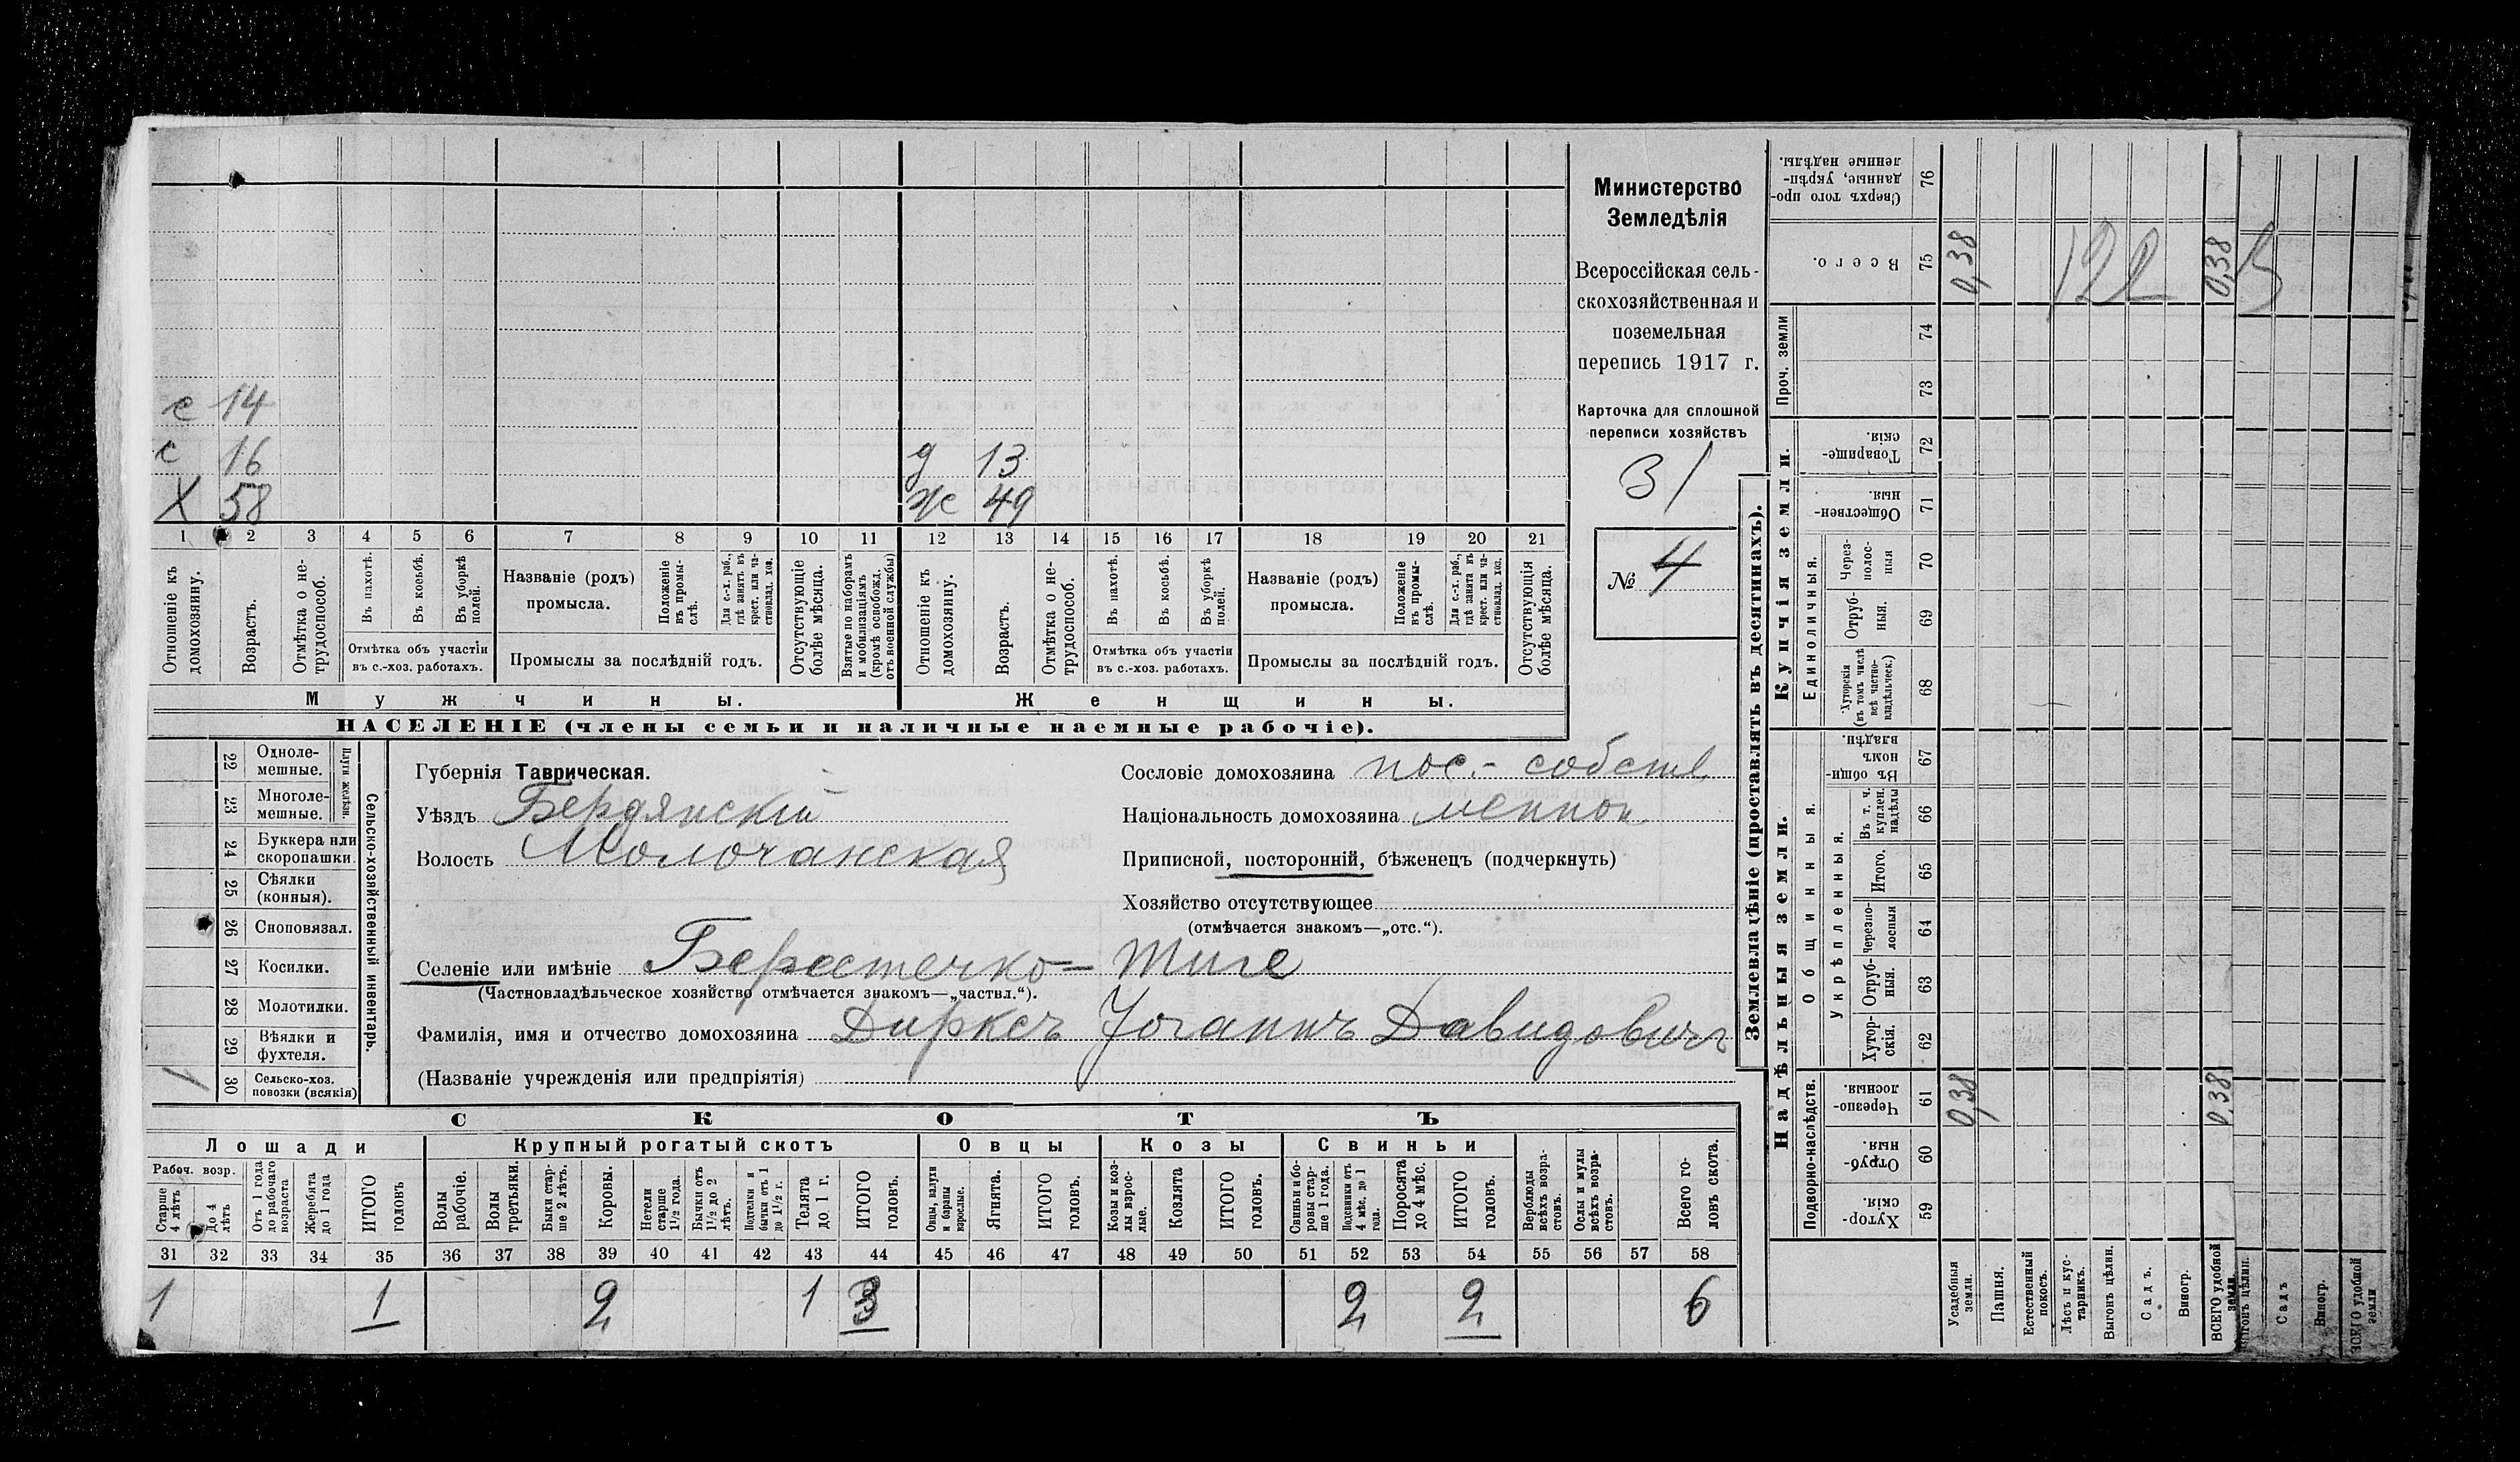 Министерство
Земледѣлія
Всероссійская сель-
скохозяйственная и
поземельная
перепись 1917 г.
Карточка для сплошной
переписи хозяйствъ
31
№ 4
с 14
с 16
Х 58
д 13
ж 49
1 2 3 4 5 6 7 8 9 10 11 12 13 14 15 16 17 18 19 20 21
Отношеніе къ домохозяину.
Возрастъ.
Отмѣтка о не-трудоспособ.
Въ пахотѣ.
Въ косьбѣ.
Въ уборкѣ полей.
Отмѣтка объ участіи въ с.-хоз. работахъ.
Названіе (родъ) промысла.
Положеніе въ промы-слѣ.
Для с.-х. раб., гдѣ занятъ въ крест. или ча-стновлад. хоз.
Промыслы за послѣдній годъ.
Отсутствующіе болѣе мѣсяца.
Взятые по наборамъ и мобилизаціямъ (кромѣ освобожд. отъ военной службы)
Отношеніе къ домохозяину.
Возрастъ.
Отмѣтка о не-трудоспособ.
Въ пахотѣ.
Въ косьбѣ.
Въ уборкѣ полей.
Отмѣтка объ участіи въ с.-хоз. работахъ.
Названіе (родъ) промысла.
Положеніе въ промы-слѣ.
Для с.-х. раб., гдѣ занята въ крест. или ча-стновлад. хоз.
Промыслы за послѣдній годъ.
Отсутствующія болѣе мѣсяца.
Мужчины.
Женщины.
НАСЕЛЕНІЕ (члены семьи и наличные наемные рабочіе).
22 Одноле-мешные.
23 Многоле-мешные.
Плуги желѣзн.
24 Буккера или скоропашки.
25 Сѣялки (конныя).
26 Сноповязал.
27 Косилки.
28 Молотилки.
29 Вѣялки и фухтеля.
30 Сельско-хоз. повозки (всякія) 1
Сельско-хозяйственный инвентарь.
Губернія Таврическая.
Уѣздъ Бердянскій
Волость Молочанская
Сословіе домохозяина пос.- собств
Національность домохозяина меннон
Приписной, посторонній, бѣженецъ (подчеркнуть)
Хозяйство отсутствующее
(отмѣчается знакомъ—„отс.“).
Селеніе или имѣніе Берестечко - Тиге
(Частновладѣльческое хозяйство отмѣчается знакомъ—„частвл.“).
Фамилія, имя и отчество домохозяина Дирксъ Іоганнъ Давидовичъ
(Названіе учрежденія или предпріятія)
СКОТЪ
Лошади Крупный рогатый скотъ Овцы Козы Свиньи
Рабоч. возр.
Старше 4 лѣтъ
До 4 лѣтъ
Отъ 1 года до рабочаго возраста
Жеребята до 1 года
ИТОГО головъ
Волы рабочіе.
Волы третьяки.
Быки стар-ше 2 лѣтъ.
Коровы.
Нетели старше 1½ года.
Бычки отъ 1½ до 2 лѣтъ.
Подтелки и бычки отъ 1 до 1½ г.
Телята до 1 г.
ИТОГО головъ.
Овцы, валухи и бараны взрослые.
Ягнята.
ИТОГО головъ.
Козы и коз-лы взрос-лые.
Козлята
ИТОГО головъ.
Свиньи и бо-ровы стар-ше 1 года.
Подсвинки отъ 4 мѣс. до 1 года.
Поросята до 4 мѣс.
ИТОГО головъ.
Верблюды всѣхъ возра-стовъ.
Ослы и мулы всѣхъ возра-стовъ.
Всего го-ловъ скота.
31 32 33 34 35 36 37 38 39 40 41 42 43 44 45 46 47 48 49 50 51 52 53 54 55 56 57 58
1 1 2 1 3 2 2 6
Землевладѣніе (проставлять въ десятинахъ).
Надѣльныя земли.
Купчія земли.
Проч. земли
Подворно-наслѣдств.
Общинныя.
Укрѣпленныя.
Единоличныя.
Сверхъ того про-данные, укрѣп-ленные надѣлы. 76
Всего. 75 0,38 122 0,38 5
74
73
Товарище-скія. 72
Обществен-ныя. 71
Через-полос-ныя 70
Отруб-ныя. 69
Хуторскія (въ томъ числѣ всѣ частно-владѣльческ.) 68
Въ общин-номъ владѣн. 67
Въ т. ч. куплен. надѣлы 66
Итого. 65
Черезпо-лосныя 64
Отруб-ныя. 63
Хутор-скія. 62
Черезпо-лосныя. 61 0,38 0,38
Отруб-ныя. 60
Хутор-скія. 59
Усадебныя земли.
Пашня.
Естественный покосъ.
Лѣсъ и кус-тарникъ.
Выгонъ цѣлин.
Садъ.
Виногр.
ВСЕГО удобной земли.
Выгонъ цѣлин.
Садъ
Виногр.
ВСЕГО удобной земли